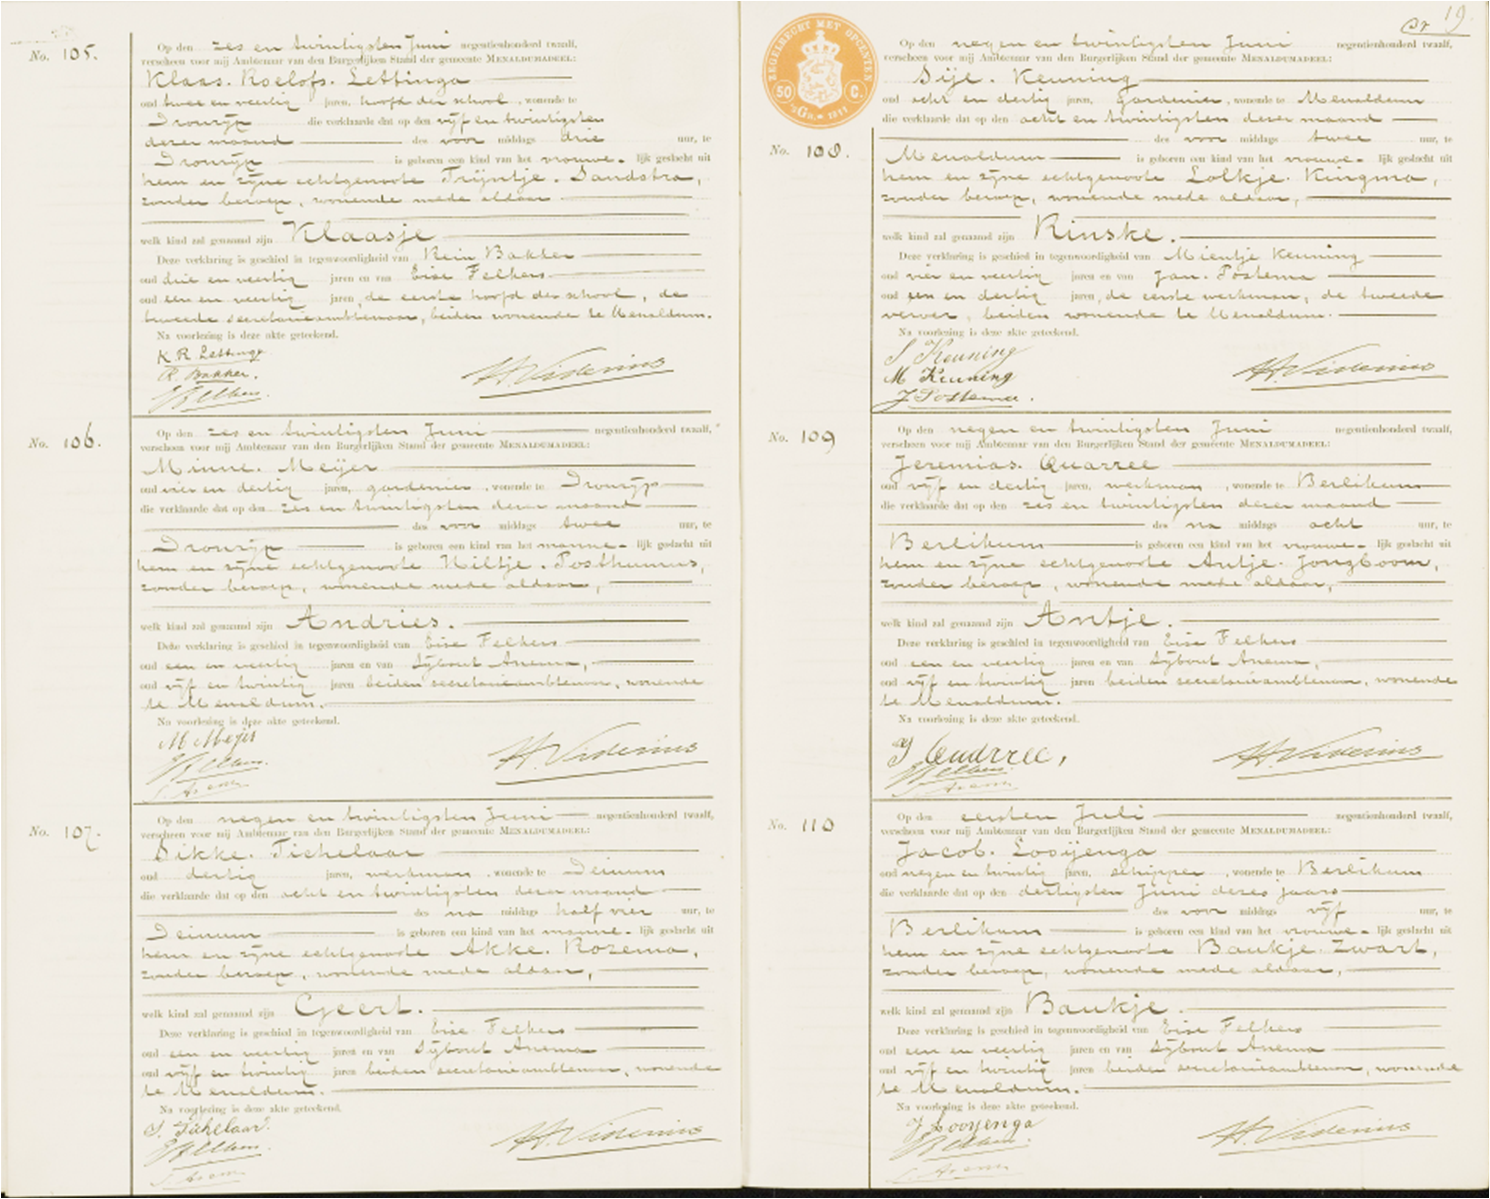 No. 105.
Op den zes en twintigsten Juni negentienhonderd twaalf,
verscheen voor mij Ambtenaar van den Burgerlijken Stand der gemeente MENALDUMADEEL:
Klaas. Roelofs. Lettinga
oud twee en veertig jaren, hoofd der school, wonende te
Dronrijp die verklaarde dat op den vijf en twintigsten
dezer maand des voor middags drie uur, te
Dronrijp is geboren een kind van het vrouwe- lijk geslacht uit
hem en zijne echtgenoote Trijntje. Sandstra,
zonder beroep, wonende mede aldaar
welk kind zal genaamd zijn Klaasje
Deze verklaring is geschied in tegenwoordigheid van Rein Bakker
oud drie en veertig jaren en van Eise Felkers
oud een en veertig jaren, de eerste hoofd der school, de
tweede secretarieambtenaar, beiden wonende te Menaldum.
Na voorlezing is deze akte geteekend.
K R Lettinga
R. Bakker.
No. 106.
Op den zes en twintigsten Juni negentienhonderd twaalf,
verscheen voor mij Ambtenaar van den Burgerlijken Stand der gemeente MENALDUMADEEL:
Minne. Meijer
oud vier en dertig jaren, gardenier, wonende te Dronrijp
die verklaarde dat op den zes en twintigsten dezer maand
des voor middags twee uur, te
Dronrijp is geboren een kind van het manne- lijk geslacht uit
hem en zijne echtgenoote Hiltje. Posthumus,
zonder beroep, wonende mede aldaar,
welk kind zal genaamd zijn Andries.
Deze verklaring is geschied in tegenwoordigheid van Eise Felkers
oud een en veertig jaren en van Sijbout Anema,
oud vijf en twintig jaren beiden secretarieambtenaar, wonende
te Menaldum.
Na voorlezing is deze akte geteekend.
M Meijer
No. 107.
Op den negen en twintigsten Juni negentienhonderd twaalf,
verscheen voor mij Ambtenaar van den Burgerlijken Stand der gemeente MENALDUMADEEL:
Sikke. Tichelaar
oud dertig jaren, werkman, wonende te Deinum
die verklaarde dat op den acht en twintigsten dezer maand
des na middags half vier uur, te
Deinum is geboren een kind van het manne- lijk geslacht uit
hem en zijne echtgenoote Akke. Rozema,
zonder beroep, wonende mede aldaar,
welk kind zal genaamd zijn Geert.
Deze verklaring is geschied in tegenwoordigheid van Eise Felkers
oud een en veertig jaren en van Sijbout Anema
oud vijf en twintig jaren beiden secretarieambtenaar, wonende
te Menaldum.
Na voorlezing is deze akte geteekend.
S. Tichelaar.
19.
ZEGELRECHT MET OPCENTEN
50 C.
No. 108.
Op den negen en twintigsten Juni negentienhonderd twaalf,
verscheen voor mij Ambtenaar van den Burgerlijken Stand der gemeente MENALDUMADEEL:
Sije. Keuning
oud acht en dertig jaren, gardenier, wonende te Menaldum
die verklaarde dat op den acht en twintigsten dezer maand
des voor middags twee uur, te
Menaldum is geboren een kind van het vrouwe- lijk geslacht uit
hem en zijne echtgenoote Lolkje. Kingma,
zonder beroep, wonende mede aldaar,
welk kind zal genaamd zijn Rinske.
Deze verklaring is geschied in tegenwoordigheid van Mientje Keuning
oud vier en veertig jaren en van Jan. Postema
oud een en dertig jaren, de eerste werkman, de tweede
verver, beiden wonende te Menaldum.
Na voorlezing is deze akte geteekend.
S Keuning
M Keuning
J Postema.
No. 109
Op den negen en twintigsten Juni negentienhonderd twaalf,
verscheen voor mij Ambtenaar van den Burgerlijken Stand der gemeente MENALDUMADEEL:
Jeremias. Quarree
oud vijf en dertig jaren, werkman, wonende te Berlikum
die verklaarde dat op den zes en twintigsten dezer maand
des na middags acht uur, te
Berlikum is geboren een kind van het vrouwe- lijk geslacht uit
hem en zijne echtgenoote Antje. Jongboom,
zonder beroep, wonende mede aldaar,
welk kind zal genaamd zijn Antje.
Deze verklaring is geschied in tegenwoordigheid van Eise Felkers
oud een en veertig jaren en van Sijbout Anema,
oud vijf en twintig jaren beiden secretarieambtenaar, wonende
te Menaldum.
Na voorlezing is deze akte geteekend.
J Quarree,
No. 110
Op den eersten Juli negentienhonderd twaalf,
verscheen voor mij Ambtenaar van den Burgerlijken Stand der gemeente MENALDUMADEEL:
Jacob. Looijenga
oud negen en twintig jaren, schipper, wonende te Berlikum
die verklaarde dat op den dertigsten Juni dezes jaars
des voor middags vijf uur, te
Berlikum is geboren een kind van het vrouwe- lijk geslacht uit
hem en zijne echtgenoote Baukje. Zwart,
zonder beroep, wonende mede aldaar,
welk kind zal genaamd zijn Baukje.
Deze verklaring is geschied in tegenwoordigheid van Eise Felkers
oud een en veertig jaren en van Sijbout Anema
oud vijf en twintig jaren beiden secretarieambtenaar, wonende
te Menaldum.
Na voorlezing is deze akte geteekend.
J Looyenga